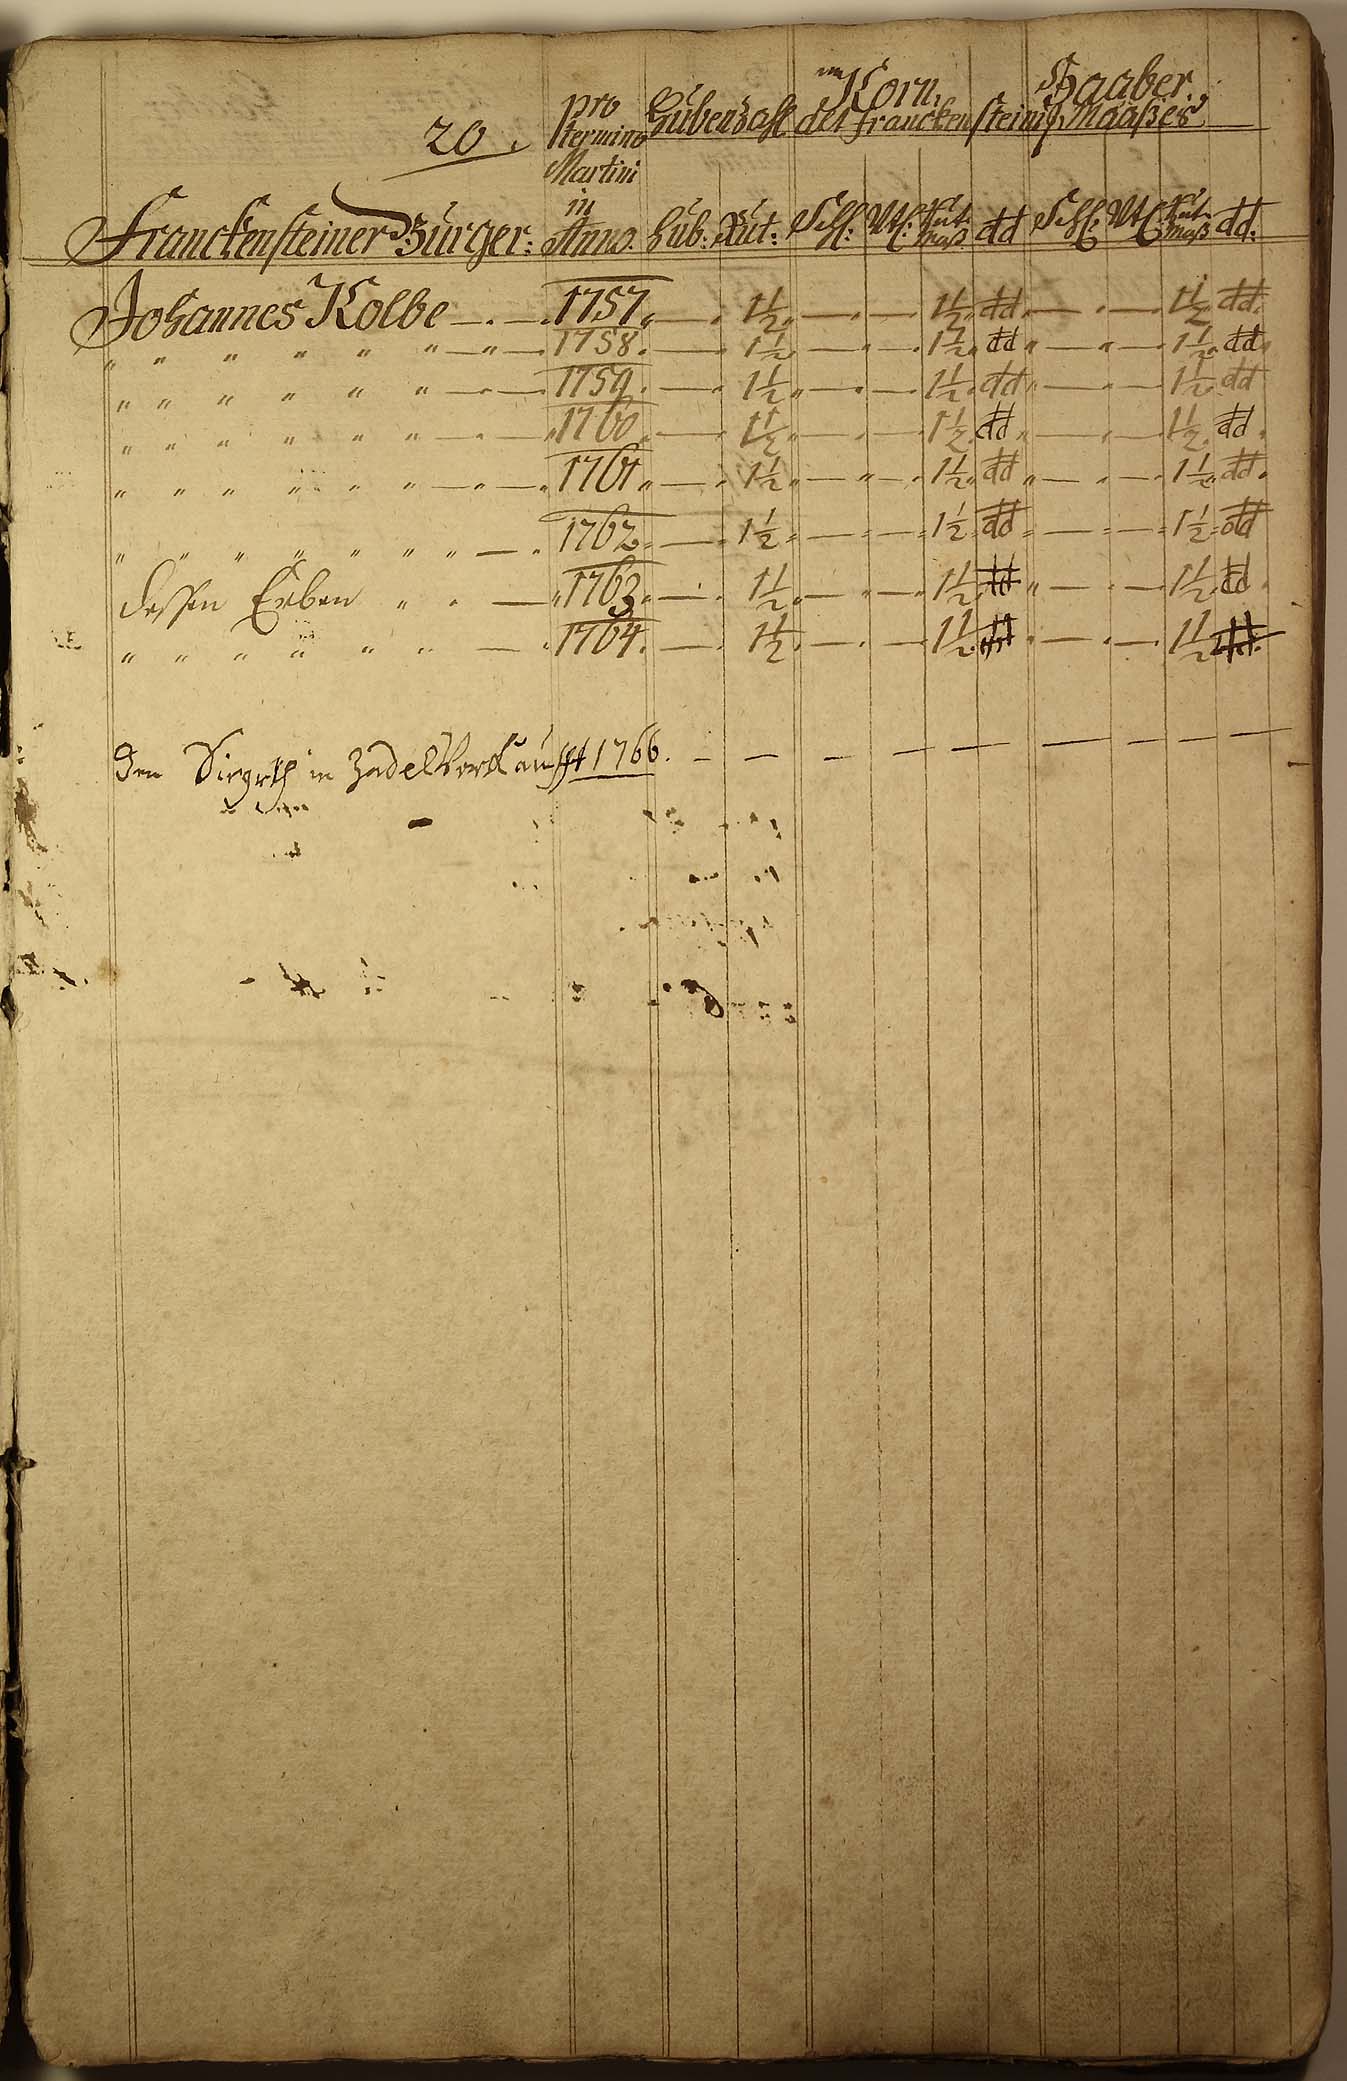 20.
pro termino Martini in Anno. Hubenzahl Korn, Haaber
des franckensteinis. Maaßes
Franckensteiner Bürger: Hub: Rut: Schfl: Vtl: maß dd Schfl: Vtl: maß dd:
Johannes Kolbe — . — . 1757 „ — . 1½ „ — . — . 1½ „ dd „ — . — . 1½ „ dd.
„ „ „ „ „ „ — „ — . 1758. — „ 1½ „ — „ — . 1½ „ dd „ — „ — . 1½ „ dd „
„ „ „ „ „ „ — . — . 1759. — „ 1½ „ — . — . 1½ . dd „ — „ — . 1½ . dd
„ „ „ „ „ „ — . — . 1760. — „ 1½ „ — . — . 1½ . dd „ — . — . 1½ . dd .
„ „ „ „ „ „ — „ — . 1761 „ — . 1½ „ — „ — . 1½ „ dd „ — . — . 1½ „ dd .
„ „ „ „ „ „ „ — . 1762 = — = 1½ = — = — = 1½ = dd = — = — = 1½ = dd
dessen Erben „ . — „ 1763 „ — . 1½ „ — . — . 1½ . dd „ — . — . 1½ . dd .
„ „ „ „ „ „ — . 1764. — . 1½ . — . — . 1½ . dd . — . — . 1½ dd.
den in Zadel Verkaufft 1766. — — — — — — — — — —